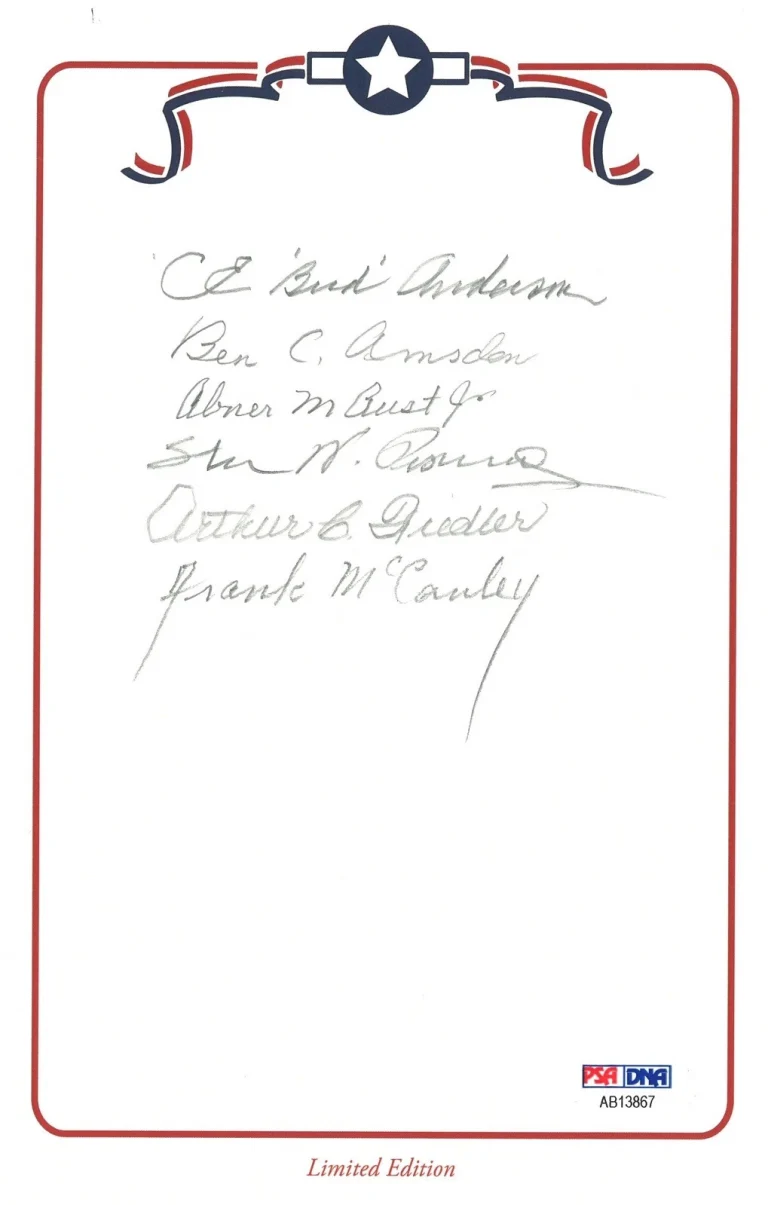 CE 'Bud' Anderson
Ben C. Amsden
Abner M Aust Jr
W.
Arthur C. Fiedler
Frank McCauley
PSA DNA
AB13867
Limited Edition